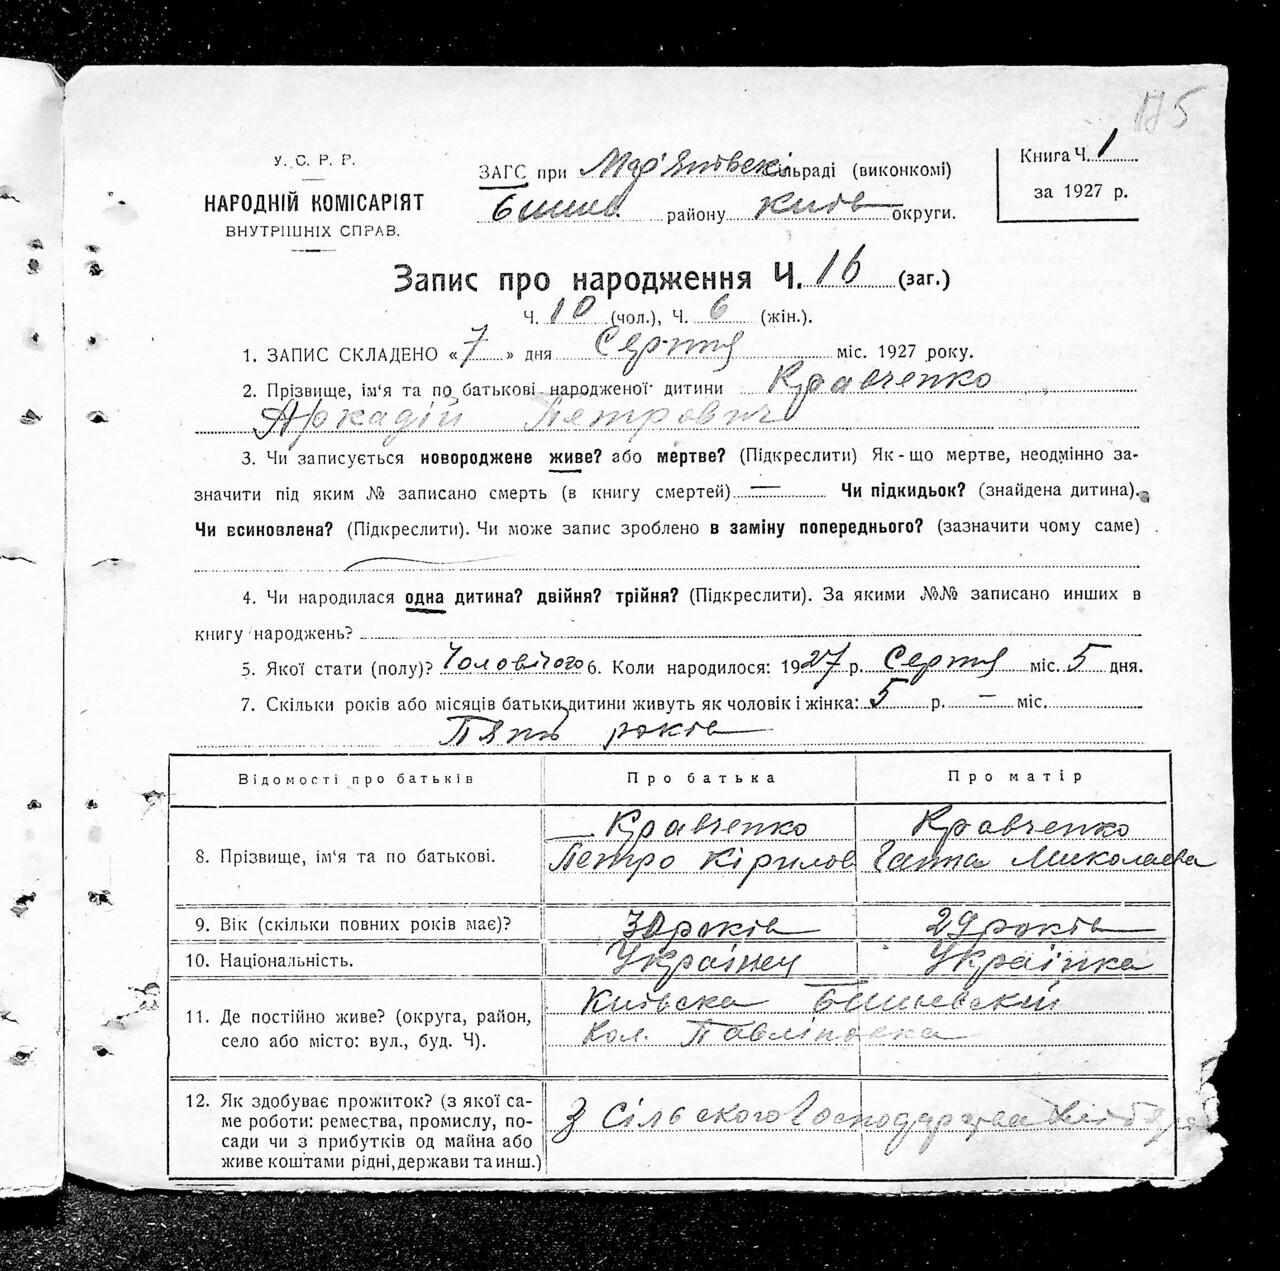 175
У. С. Р. Р.
НАРОДНІЙ КОМІСАРІЯТ
ВНУТРІШНІХ СПРАВ.
ЗАГС при сільраді (виконкомі)
Бишив. району Київ округи.
Книга Ч. 1
за 1927 р.
Запис про народження Ч. 16 (заг.)
Ч. 10 (чол.), Ч. 6 (жін.).
1. ЗАПИС СКЛАДЕНО « 7 » дня Серпня міс. 1927 року.
2. Прізвище, ім'я та по батькові народженої дитини Кравченко
Аркадій Петрович
3. Чи записується новороджене живе? або мертве? (Підкреслити) Як-що мертве, неодмінно за-
значити під яким № записано смерть (в книгу смертей) — Чи підкидьок? (знайдена дитина).
Чи всиновлена? (Підкреслити). Чи може запис зроблено в заміну попереднього? (зазначити чому саме)
4. Чи народилася одна дитина? двійня? трійня? (Підкреслити). За якими №№ записано инших в
книгу народжень?
5. Якої стати (полу)? Чоловічого 6. Коли народилося: 1927 р. Серпня міс. 5 дня.
7. Скільки років або місяців батьки дитини живуть як чоловік і жінка: 5 р. — міс.
Пять років
Відомості про батьків Про батька Про матір
8. Прізвище, ім'я та по батькові. Кравченко Петро Кірилов Кравченко Ганна Миколаевна
9. Вік (скільки повних років має)? 30 років 29 років
10. Національність. Українец Українка
11. Де постійно живе? (округа, район, Київска Бишевский
село або місто: вул., буд. Ч). Кол. Павліновка
12. Як здобуває прожиток? (з якої са-
ме роботи: ремества, промислу, по- З Сільского Господарства
сади чи з прибутків од майна або
живе коштами рідні, держави та инш.)